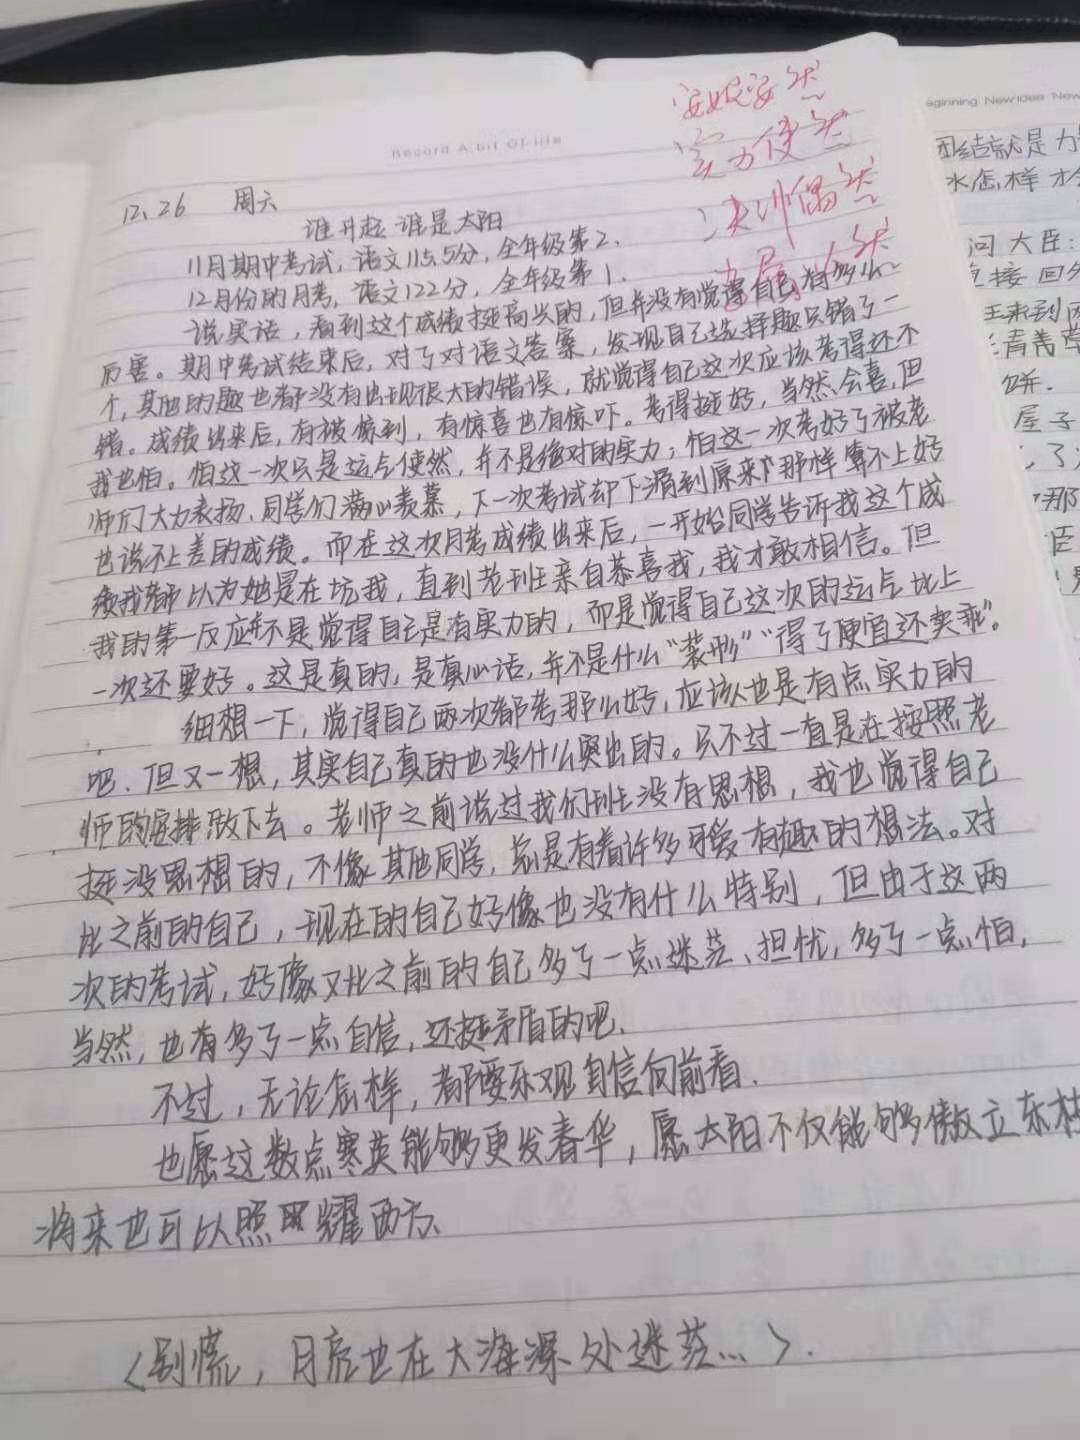 Record A bit Of life
安妮安然
实力使然
决非偶然
12.26 周六
谁升起 谁是太阳
11月期中考试，语文115.5分，全年级第2.
12月份的月考，语文122分，全年级第1.
说实话，看到这个成绩挺高兴的，但并没有觉得自己有多么
厉害。期中考试结束后，对了对语文答案，发现自己选择题只错了一
个，其他的题也都没有出现很大的错误，就觉得自己这次应该考得还不
错。成绩出来后，有被惊到，有惊喜也有惊吓。考得挺好，当然会喜，但
我也怕。怕这一次只是运气使然，并不是绝对的实力；怕这一次考好了被老
师们大力表扬、同学们满心羡慕，下一次考试却下滑到原来那样算不上好
也说不上差的成绩。而在这次月考成绩出来后，一开始同学告诉我这个成
绩我都以为她是在坑我，直到老班亲自恭喜我，我才敢相信。但
我的第一反应并不是觉得自己是有实力的，而是觉得自己这次的运气比上
一次还要好。这是真的，是真心话，并不是什么“装形”“得了便宜还卖乖”。
细想一下，觉得自己两次都考那么好，应该也是有点实力的
吧．但又一想，其实自己真的也没什么突出的。只不过一直是在按照老
师的安排做下去。老师之前说过我们班没有思想，我也觉得自己
挺没思想的，不像其他同学，总是有着许多可爱有趣的想法。对
比之前的自己，现在的自己好像也没有什么特别，但由于这两
次的考试，好像又比之前的自己多了一点迷茫、担忧，多了一点怕，
当然，也有多了一点自信，还挺矛盾的吧．
不过，无论怎样，都要乐观自信向前看．
也愿这数点寒英能够更发春华，愿太阳不仅能够傲立东
将来也可以照耀西方．
〈别慌，月亮也在大海深处迷茫...〉．
eginning New idea New
团结就是力
水怎样才
问大臣：
直接回
王来到
青青草
饼．
屋子
了
那
臣